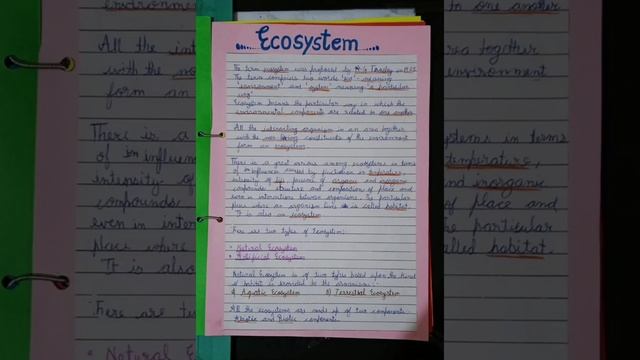 Ecosystem
The term ecosystem was proposed by A.G. Tansley in 1935.
The term comprises two words 'Eco' - meaning
'environment' and 'system' meaning 'a particular
way'.
Ecosystem means the particular way in which the
environmental components are related to one another
All the interacting organism in an area together
with the non living constituents of the environment
form an ecosystem.
There is a great among ecosystems in terms
of influence by in temperature,
intensity of of organic and inorganic
compounds, structure and composition of place and
even in interactions between organisms. The particular
place where an organism lives is called habitat.
It is also an ecosystem
There are two types of Ecosystem:
• Natural Ecosystem
• Artificial Ecosystem
Natural Ecosystem is of two types based upon the kind
of habitat is provided to the organisms:
a) Aquatic Ecosystem b) Terrestrial Ecosystem
All the ecosystems are made up of two components:
Abiotic and Biotic components.